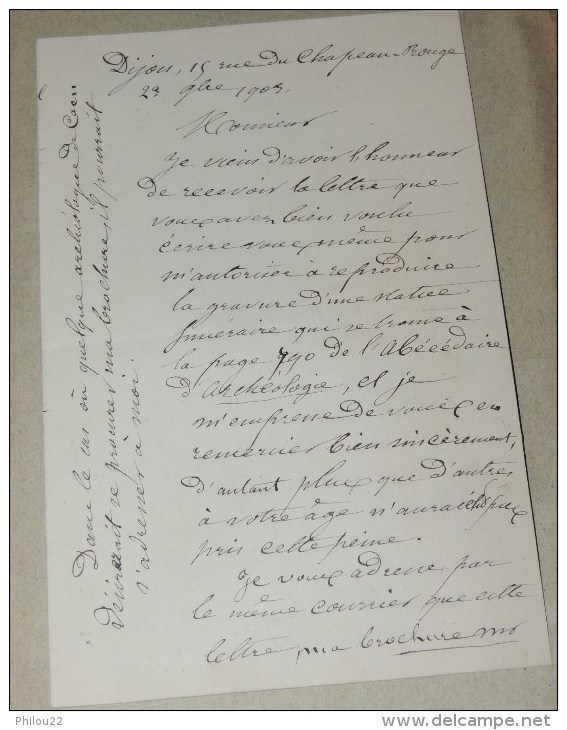 Dijon, 15 rue du Chapeau-Rouge
23 9bre 1903.
Monsieur
Je viens d'avoir l'honneur
de recevoir la lettre que
vous avez bien voulu
écrire vous même pour
m'autoriser à reproduire
la gravure d'une statue
funéraire qui se trouve à
la page 790 de l'Abécédaire
d'Archéologie, et je
m'empresse de vous en
remercier bien sincèrement,
d'autant plus que d'autres
à votre âge n'auraient pas
pris cette peine.
Je vous adresse par
le même courrier que cette
lettre, ma brochure
Dans le cas où quelque archéologue de Caen
désirerait se procurer ma brochure, il pourrait
s'adresser à moi.
Philou22
delcampe.net